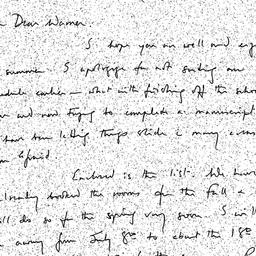 Dear Warner,
I hope you are well and enj
summer. I apologize for not sending an
earlier — what with finishing off the scho
and now trying to complete a manuscript
have been letting things slide in many areas
afraid.
Enclosed is the list. We have
already booked the rooms for the fall &
do so for the spring very soon. I will
away from July 8th to about the 18th